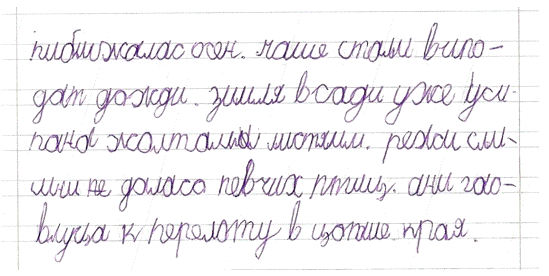 пиближалас осен. чаше стали випо-
дат дожди. зимля всади уже уси-
пана жолтами листями. режи сли-
шни не доласо певчих птиц. ани гао-
вяцца к перелоту в цоплие края.